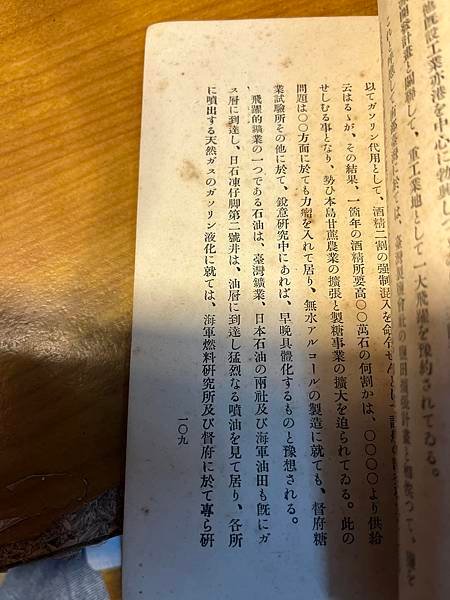 他既設工業亦港を中心に勃興し
開設計畫と關聯して、重工業地として一大飛躍を豫約されてゐる。
以てガソリン代用として、酒精二割の强制混入を命令せんとして計
云はるゝが、その結果、一箇年の酒精所要高〇〇萬石の何割かは、〇〇〇〇より供給
せしむる事となり、勢ひ本島甘蔗農業の擴張と製糖事業の擴大を迫られてゐる。此の
問題は〇〇方面に於ても力瘤を入れて居り、無水アルコールの製造に就ても、督府糖
業試驗所その他に於て、銳意研究中にあれば、早晚具體化するものと豫想される。
飛躍的鑛業の一つである石油は、臺灣鑛業、日本石油の兩社及び海軍油田も旣にガ
ス層に到達し、日石凍仔脚第二號井は、油層に到達し猛烈なる噴油を見て居り、各所
に噴出する天然ガスのガソリン液化に就ては、海軍燃料研究所及び督府に於て專ら硏
一〇九